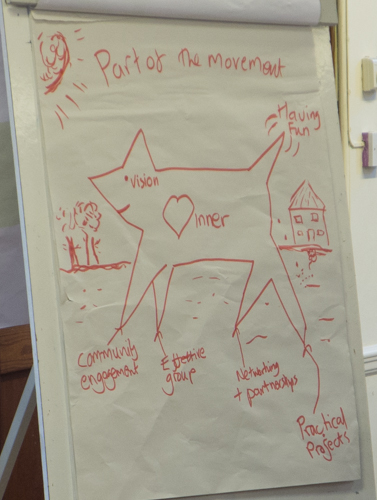 Part of the movement
Having
fun
Vision
inner
Community
engagement
Effective
group
Networking
+ partnerships
Practical
Projects